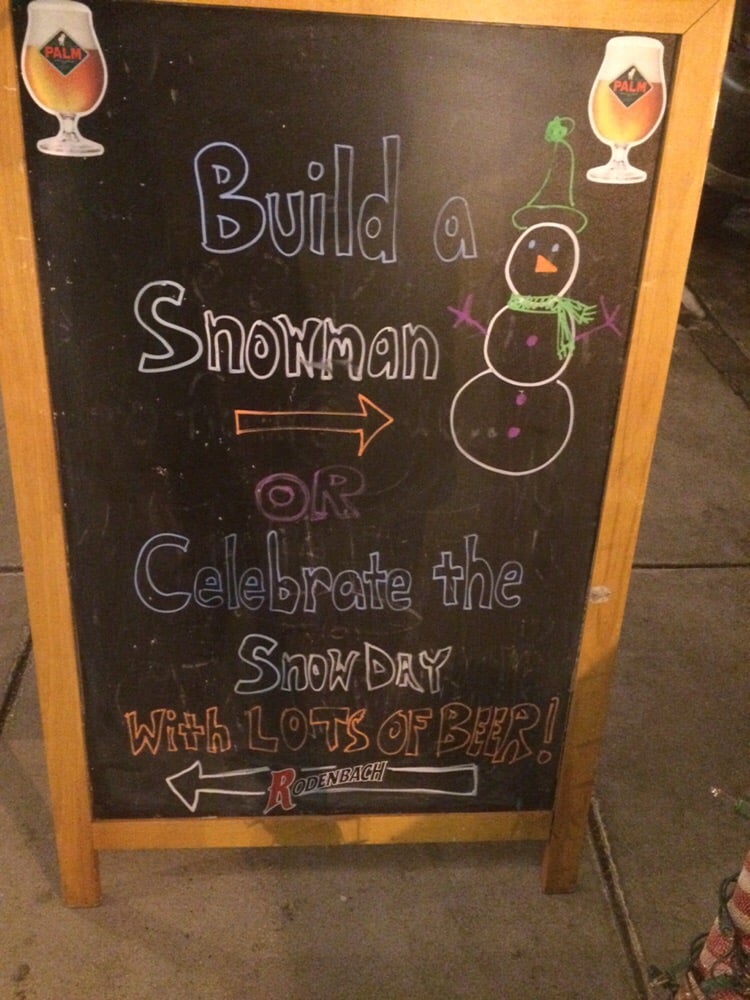 PALM
PALM
Build a
Snowman
OR
Celebrate the
Snow DAY
With LOTS OF BEER!
RODENBACH